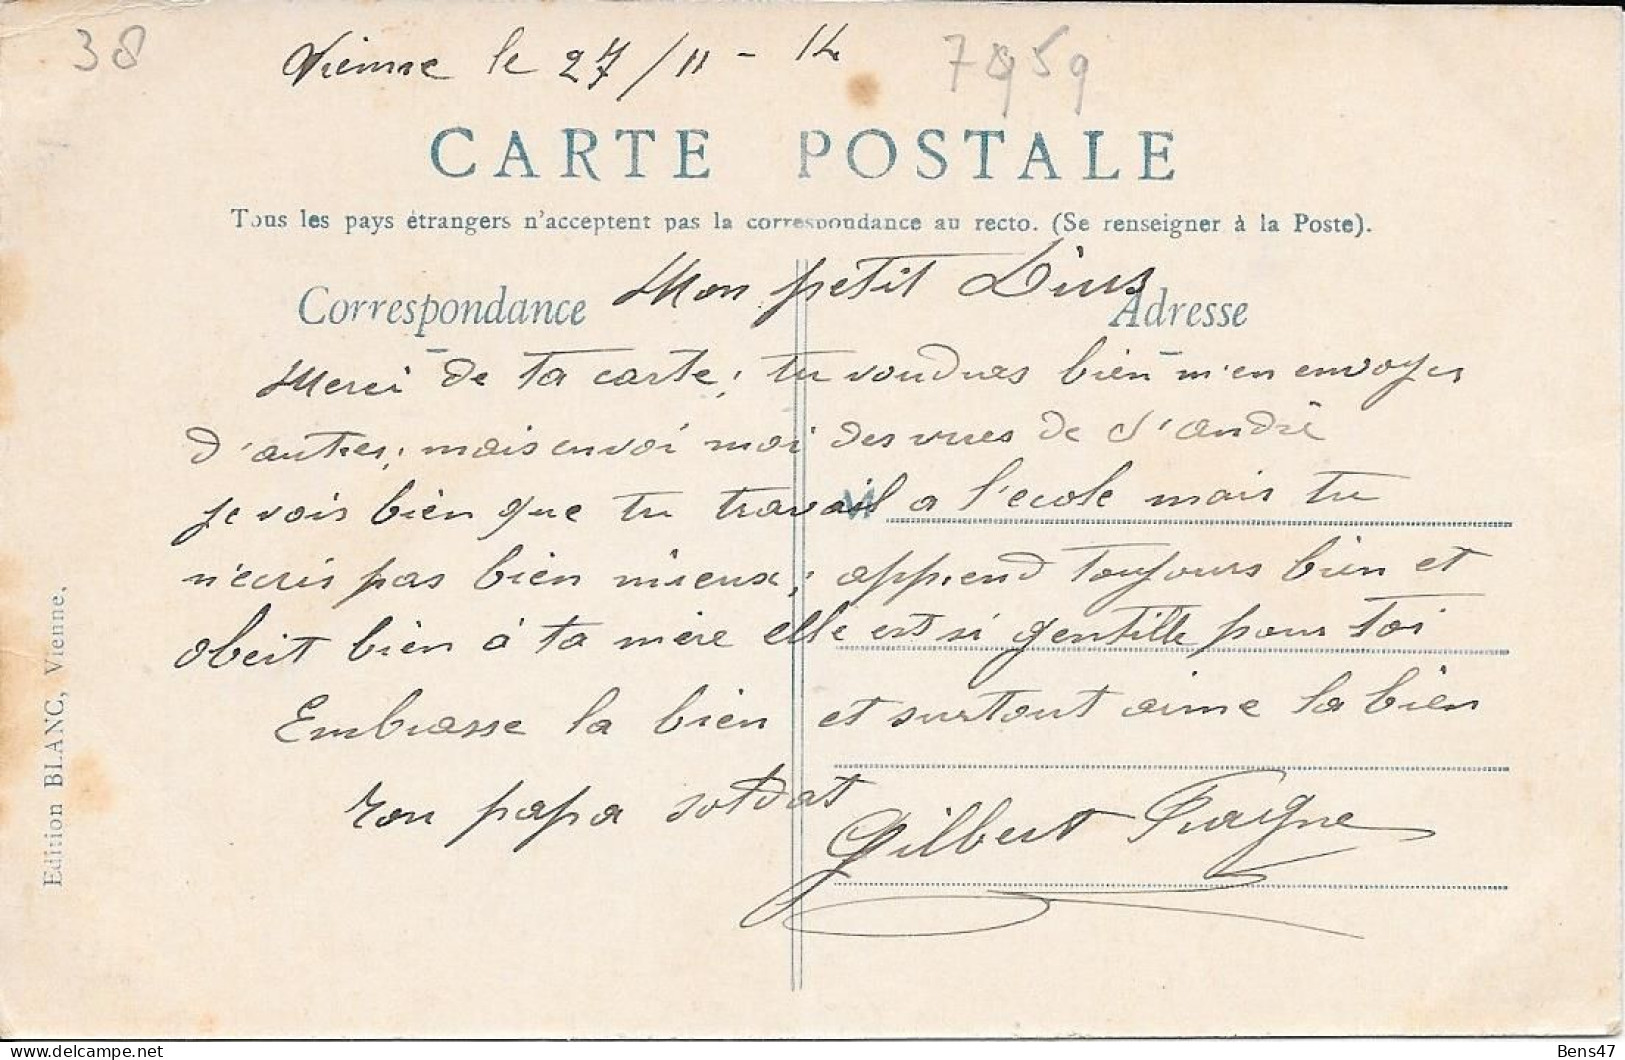 38
Vienne le 27/11 - 14
CARTE POSTALE
Tous les pays étrangers n'acceptent pas la correspondance au recto. (Se renseigner à la Poste).
Correspondance
Adresse
Mon petit
Merci de ta carte, tu voudras bien m'en envoyer
d'autres; mais envoi moi des vues de St andré
je vois bien que tu travail a l'ecole mais tu
M
n'ecris pas bien mieux; apprend toujours bien et
obeit bien à ta mère elle est si gentille pour toi
Embrasse la bien et surtout aime la bien
ton papa soldat
Gilbert
Edition BLANC, Vienne.
Bens47